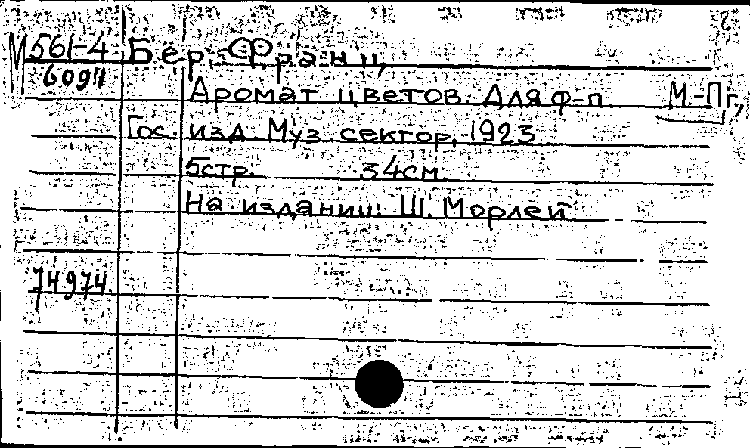 М 561-4 Бер, Франц
6094
Аромат цветов. Для ф-п. М.-Пг,
Гос. изд. Муз. сектор, 1923
5стр. 34см
На издании: Ш. Морлей
74974